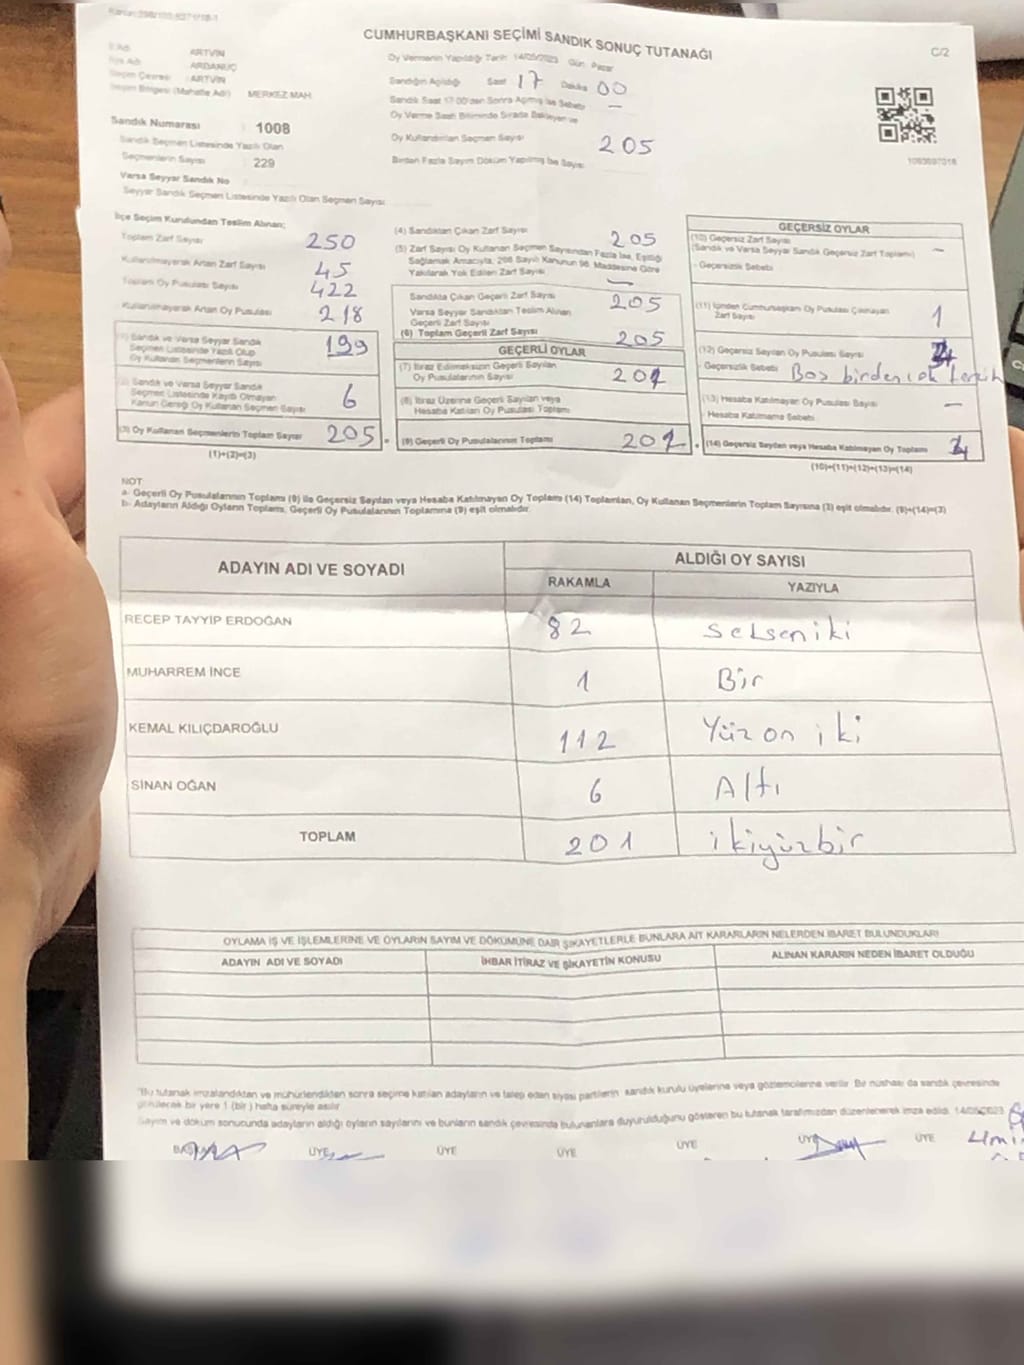 CUMHURBAŞKANI SEÇİMİ SANDIK SONUÇ TUTANAĞI
C/2
İl Adı : ARTVİN
İlçe Adı : ARDANUÇ
Seçim Çevresi : ARTVİN
Seçim Bölgesi (Mahalle Adı) : MERKEZ MAH.
Sandık Numarası : 1008
Sandık Seçmen Listesinde Yazılı Olan
Seçmenlerin Sayısı : 229
Varsa Seyyar Sandık No
Seyyar Sandık Seçmen Listesinde Yazılı Olan Seçmen Sayısı
Oy Vermenin Yapıldığı Tarih 14/05/2023 Gün Pazar
Sandığın Açıldığı Saat 17 Dakika 00
Sandık Saat 17:00'den Sonra Açılmış İse Sebebi —
Oy Verme Saati Bitiminde Sırada Bekleyen ve
Oy Kullandırılan Seçmen Sayısı 205
Birden Fazla Sayım Döküm Yapılmış İse Sayısı
1083697018
İlçe Seçim Kurulundan Teslim Alınan;
Toplam Zarf Sayısı 250
Kullanılmayarak Artan Zarf Sayısı 45
Toplam Oy Pusulası Sayısı 422
Kullanılmayarak Artan Oy Pusulası 218
(1) Sandık ve Varsa Seyyar Sandık
Seçmen Listesinde Yazılı Olup
Oy Kullanan Seçmenlerin Sayısı 199
(2) Sandık ve Varsa Seyyar Sandık
Seçmen Listesinde Kayıtlı Olmayan
Kanun Gereği Oy Kullanan Seçmen Sayısı 6
(3) Oy Kullanan Seçmenlerin Toplam Sayısı 205
(1)+(2)=(3)
(4) Sandıktan Çıkan Zarf Sayısı 205
(5) Zarf Sayısı Oy Kullanan Seçmen Sayısından Fazla İse, Eşitliği
Sağlamak Amacıyla, 298 Sayılı Kanunun 98. Maddesine Göre
Yakılarak Yok Edilen Zarf Sayısı —
Sandıkta Çıkan Geçerli Zarf Sayısı 205
Varsa Seyyar Sandıktan Teslim Alınan
Geçerli Zarf Sayısı
(6) Toplam Geçerli Zarf Sayısı 205
GEÇERLİ OYLAR
(7) İtiraz Edilmeksizin Geçerli Sayılan
Oy Pusulalarının Sayısı 201
(8) İtiraz Üzerine Geçerli Sayılan veya
Hesaba Katılan Oy Pusulası Toplamı
(9) Geçerli Oy Pusulalarının Toplamı 201
GEÇERSİZ OYLAR
(10) Geçersiz Zarf Sayısı
(Sandık ve Varsa Seyyar Sandık Geçersiz Zarf Toplamı) —
- Geçersizlik Sebebi
(11) İçinden Cumhurbaşkanı Oy Pusulası Çıkmayan
Zarf Sayısı 1
(12) Geçersiz Sayılan Oy Pusulası Sayısı
- Geçersizlik Sebebi Boş birden çok tercih
(13) Hesaba Katılmayan Oy Pusulası Sayısı —
- Hesaba Katılmama Sebebi
(14) Geçersiz Sayılan veya Hesaba Katılmayan Oy Toplamı
(10)+(11)+(12)+(13)=(14)
NOT
a- Geçerli Oy Pusulalarının Toplamı (9) ile Geçersiz Sayılan veya Hesaba Katılmayan Oy Toplamı (14) Toplamları, Oy Kullanan Seçmenlerin Toplam Sayısına (3) eşit olmalıdır. (9)+(14)=(3)
b- Adayların Aldığı Oyların Toplamı, Geçerli Oy Pusulalarının Toplamına (9) eşit olmalıdır.
ADAYIN ADI VE SOYADI ALDIĞI OY SAYISI
RAKAMLA YAZIYLA
RECEP TAYYİP ERDOĞAN 82 Seksen iki
MUHARREM İNCE 1 Bir
KEMAL KILIÇDAROĞLU 112 Yüz on iki
SİNAN OĞAN 6 Altı
TOPLAM 201 ikiyüzbir
OYLAMA İŞ VE İŞLEMLERİNE VE OYLARIN SAYIM VE DÖKÜMÜNE DAİR ŞİKAYETLERLE BUNLARA AİT KARARLARIN NELERDEN İBARET BULUNDUKLARI
ADAYIN ADI VE SOYADI İHBAR İTİRAZ VE ŞİKAYETİN KONUSU ALINAN KARARIN NEDEN İBARET OLDUĞU
"Bu tutanak imzalandıktan ve mühürlendikten sonra seçime katılan adayların ve talep eden siyasi partilerin sandık kurulu üyelerine veya gözlemcilerine verilir. Bir nüshası da sandık çevresinde
görülecek bir yere 1 (bir) hafta süreyle asılır.
Sayım ve döküm sonucunda adayların aldığı oyların sayılarını ve bunların sandık çevresinde bulunanlara duyurulduğunu gösteren bu tutanak tarafımızdan düzenlenerek imza edildi. 14/05/2023
BAŞKAN ÜYE ÜYE ÜYE ÜYE ÜYE ÜYE